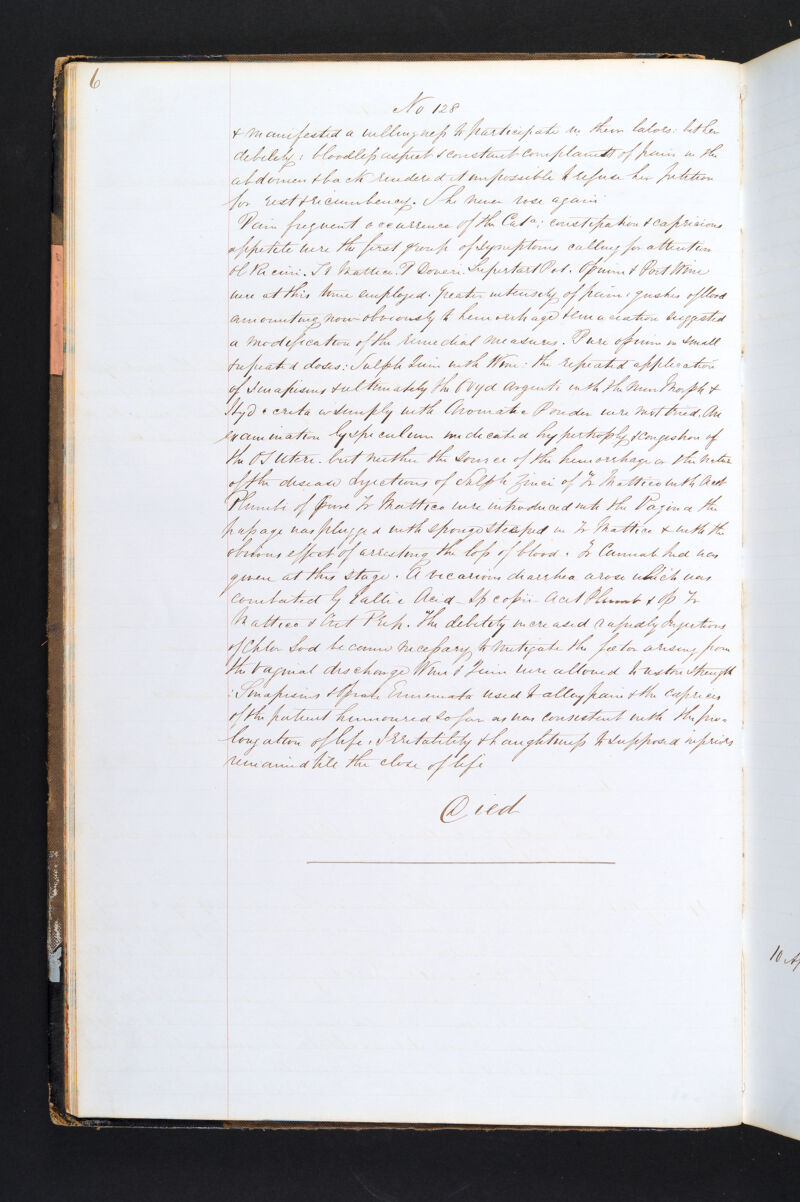 6
No 128
& manifested a willingness to participate in their labors: but her
debility: bloodless aspect & constant complaints of pain in the
abdomen & back rendered it impossible to refuse her petition
for rest & recumbency. She never rose again
Pain frequent occurrence of the Cata; constipation & capricious
appetite were the first group of symptoms calling for attention
Ol Ricini. Tr Mattico. P Doveri. Supertart Pot. Opium & Port Wine
were at this time employed. Greater intensity of pain: gushes of blood
amounting now obviously to hemorrhage & emaciation suggested
a modification of the remedial measures. Pure opium in small
& repeated doses: Sulph Quin with Wine: the repeated application
of Sinapisms & ultimately the Oxyd Argenti with the Mur Morph &
Hyd c creta or simply with Aromatic Powder were tried. An
examination by speculum indicated hypertrophy & congestion of
the Os Uteri. but neither the source of the hemorrhage or the nature
of the disease Injections of Sulph Zinci of Tr Mattico with Acet
Plumbi of pure Tr Mattico were introduced into the Vagina the
passage was plugged with sponge steeped in Tr Mattico & with the
obvious effect of arresting the loss of blood. Tr Cannab Ind was
given at this stage. A vicarious diarrhea arose which was
combated by Gallic Acid Acet Plumb & Op Tr
Mattico & Cret Prep. The debility increased rapidly Injections
of Chlor Sod became necessary to mitigate the foetor arising from
the vaginal discharge Wine & Quin were allowed to restore strength
: Sinapisms & Opiate Ennemata used to allay pain & the caprices
of the patient humoured so far as was consistent with the pro-
longation of life. Irritability & haughtiness to supposed inferiors
remained till the close of life
Died
10 Ap